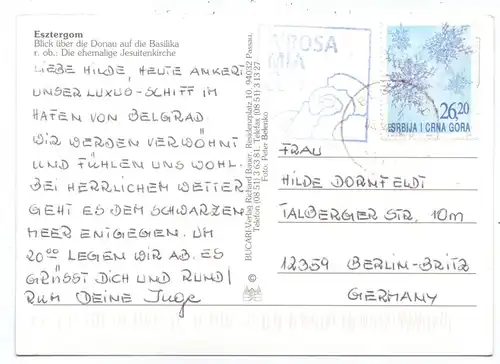 Esztergom
Blick über die Donau auf die Basilika
r. ob.: Die ehemalige Jesuitenkirche
LIEBE HILDE, HEUTE ANKERT
UNSER LUXUS-SCHIFF IM
HAFEN VON BELGRAD
WIR WERDEN VERWÖHNT
UND FÜHLEN UNS WOHL.
BEI HERRLICHEM WETTER
GEHT ES DEM SCHWARZEN
MEER ENTGEGEN. UM
20⁰⁰ LEGEN WIR AB. ES
GRÜSST DICH UND RUND/
RUM DEINE Inge
BUCARI-Verlag Richard Bauer, Residenzplatz 10, 94032 Passau,
Telefon (08 51) 3 63 81, Telefax (08 51) 3 13 27
Foto: Peter
©
ROSA
MIA
26,20
SRBIJA I CRNA GORA
FRAU
HILDE DORNFELDT
TALBERGER STR. 10m
12359 BERLIN-BRITZ
GERMANY